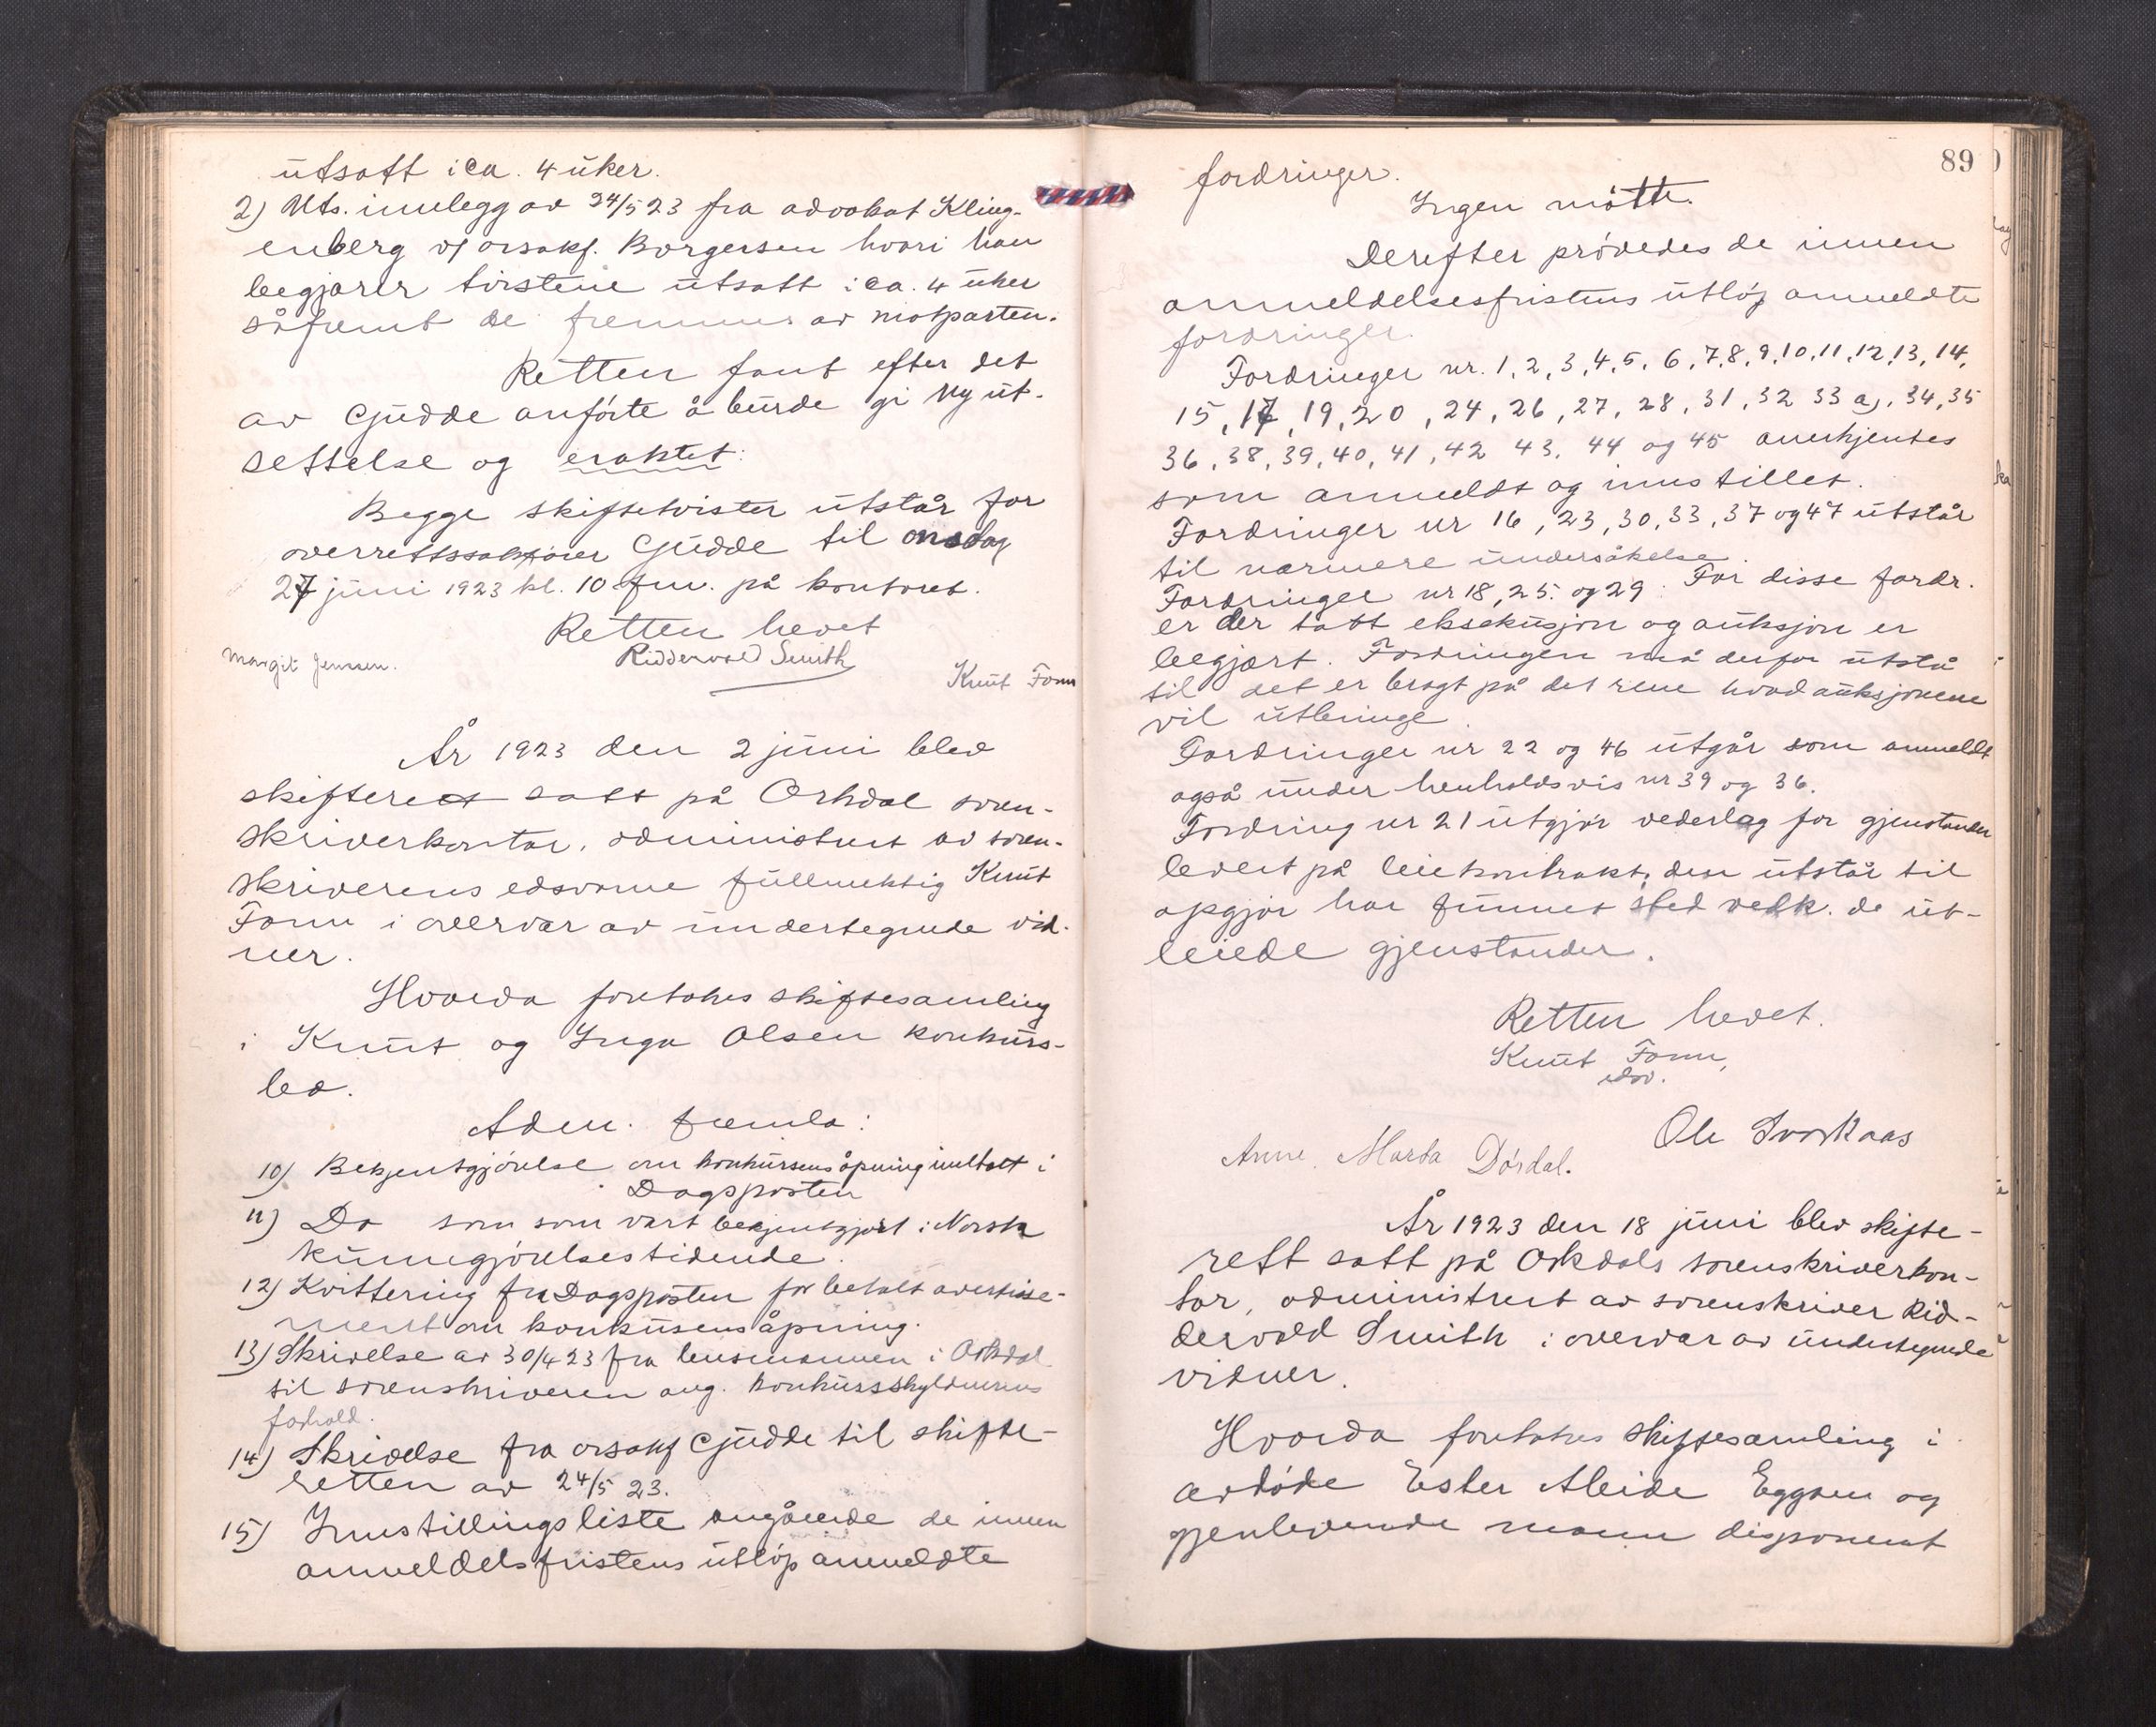 utsatt i ca. 4 uker.
2) Uts. innlegg av 24/5 23 fra advokat Kling-
enberg v/ orsakf. Borgersen hvori han
begjærer tvistene utsatt i ca. 4 uker
såfremt de fremmes av motparten.
Retten fant efter det
av Gjudde anförte å burde gi ny ut-
settelse og eraktet:
Begge skiftetvister utstår for
overrettssakfører Gjudde til onsdag
27 juni 1923 kl. 10 fm. på kontoret.
Retten hevet
Ridderwold Smith
Margit Jenssen.
Knut Fonn
År 1923 den 2 juni blev
skifterett satt på Orkdal soren-
skriverkontor, administrert av soren-
skriverens edsvorne fullmektig Knut
Fonn i overvær av undertegnede vid-
ner.
Hvorda foretokes skiftesamling
i Knut og Inga Olsen konkurs-
bo.
Adm. fremla:
10) Bekjentgjörelse om konkursens åpning inntatt i
Dagsposten
11) Do som som vært bekjentgjort i Norsk
kunngjörelsestidende.
12) Kvittering fra Dagsposten for betalt avertisse-
ment om konkursens åpning.
13) Skrivelse av 30/4 23 fra lensmannen i Orkdal
til sorenskriveren ang. konkursskyldnerens
forhold.
14) Skrivelse fra orsakf Gjudde til skifte-
retten av 24/5 23.
15) Innstillingsliste angående de innen
anmeldelsfristens utlöp anmeldte
89
fordringer.
Ingen mötte.
Derefter prövedes de innen
anmeldelsesfristens utlöp anmeldte
fordringer.
Fordringer nr. 1, 2, 3, 4, 5, 6, 7, 8, 9, 10, 11, 12, 13, 14,
15, 17, 19, 20, 24, 26, 27, 28, 31, 32 33 a), 34, 35
36, 38, 39, 40, 41, 42 43, 44 og 45 anerkjentes
som anmeldt og innstillet.
Fordringer nr 16, 23, 30, 33, 37 og 47 utstår
til nærmere undersökelse.
Fordringer nr 18, 25 og 29: For disse fordr.
er der tatt eksekusjon og auksjon er
begjært. Fordringen må derfor utstå
til det er bragt på det rene hvad auksjonene
vil utbringe.
Fordringer nr 22 og 46 utgår som anmeldt
også under henholdsvis nr 39 og 36.
Fordring nr 21 utgjör vederlag for gjenstander
levert på leiekontrakt; den utstår til
opgjör har funnet sted vedk. de ut-
leiede gjenstander.
Retten hevet.
Knut Fonn,
edsv.
Ole Svorkaas
Anne Marta Dördal.
År 1923 den 18 juni blev skifte-
rett satt på Orkdals sorenskriverkon-
tor, administrert av sorenskriver Rid-
dervold Smith i overvær av undertegnede
vidner.
Hvorda foretokes skiftesamling i
avdöde Ester Aleide Eggsen og
gjenlevende mann disponent